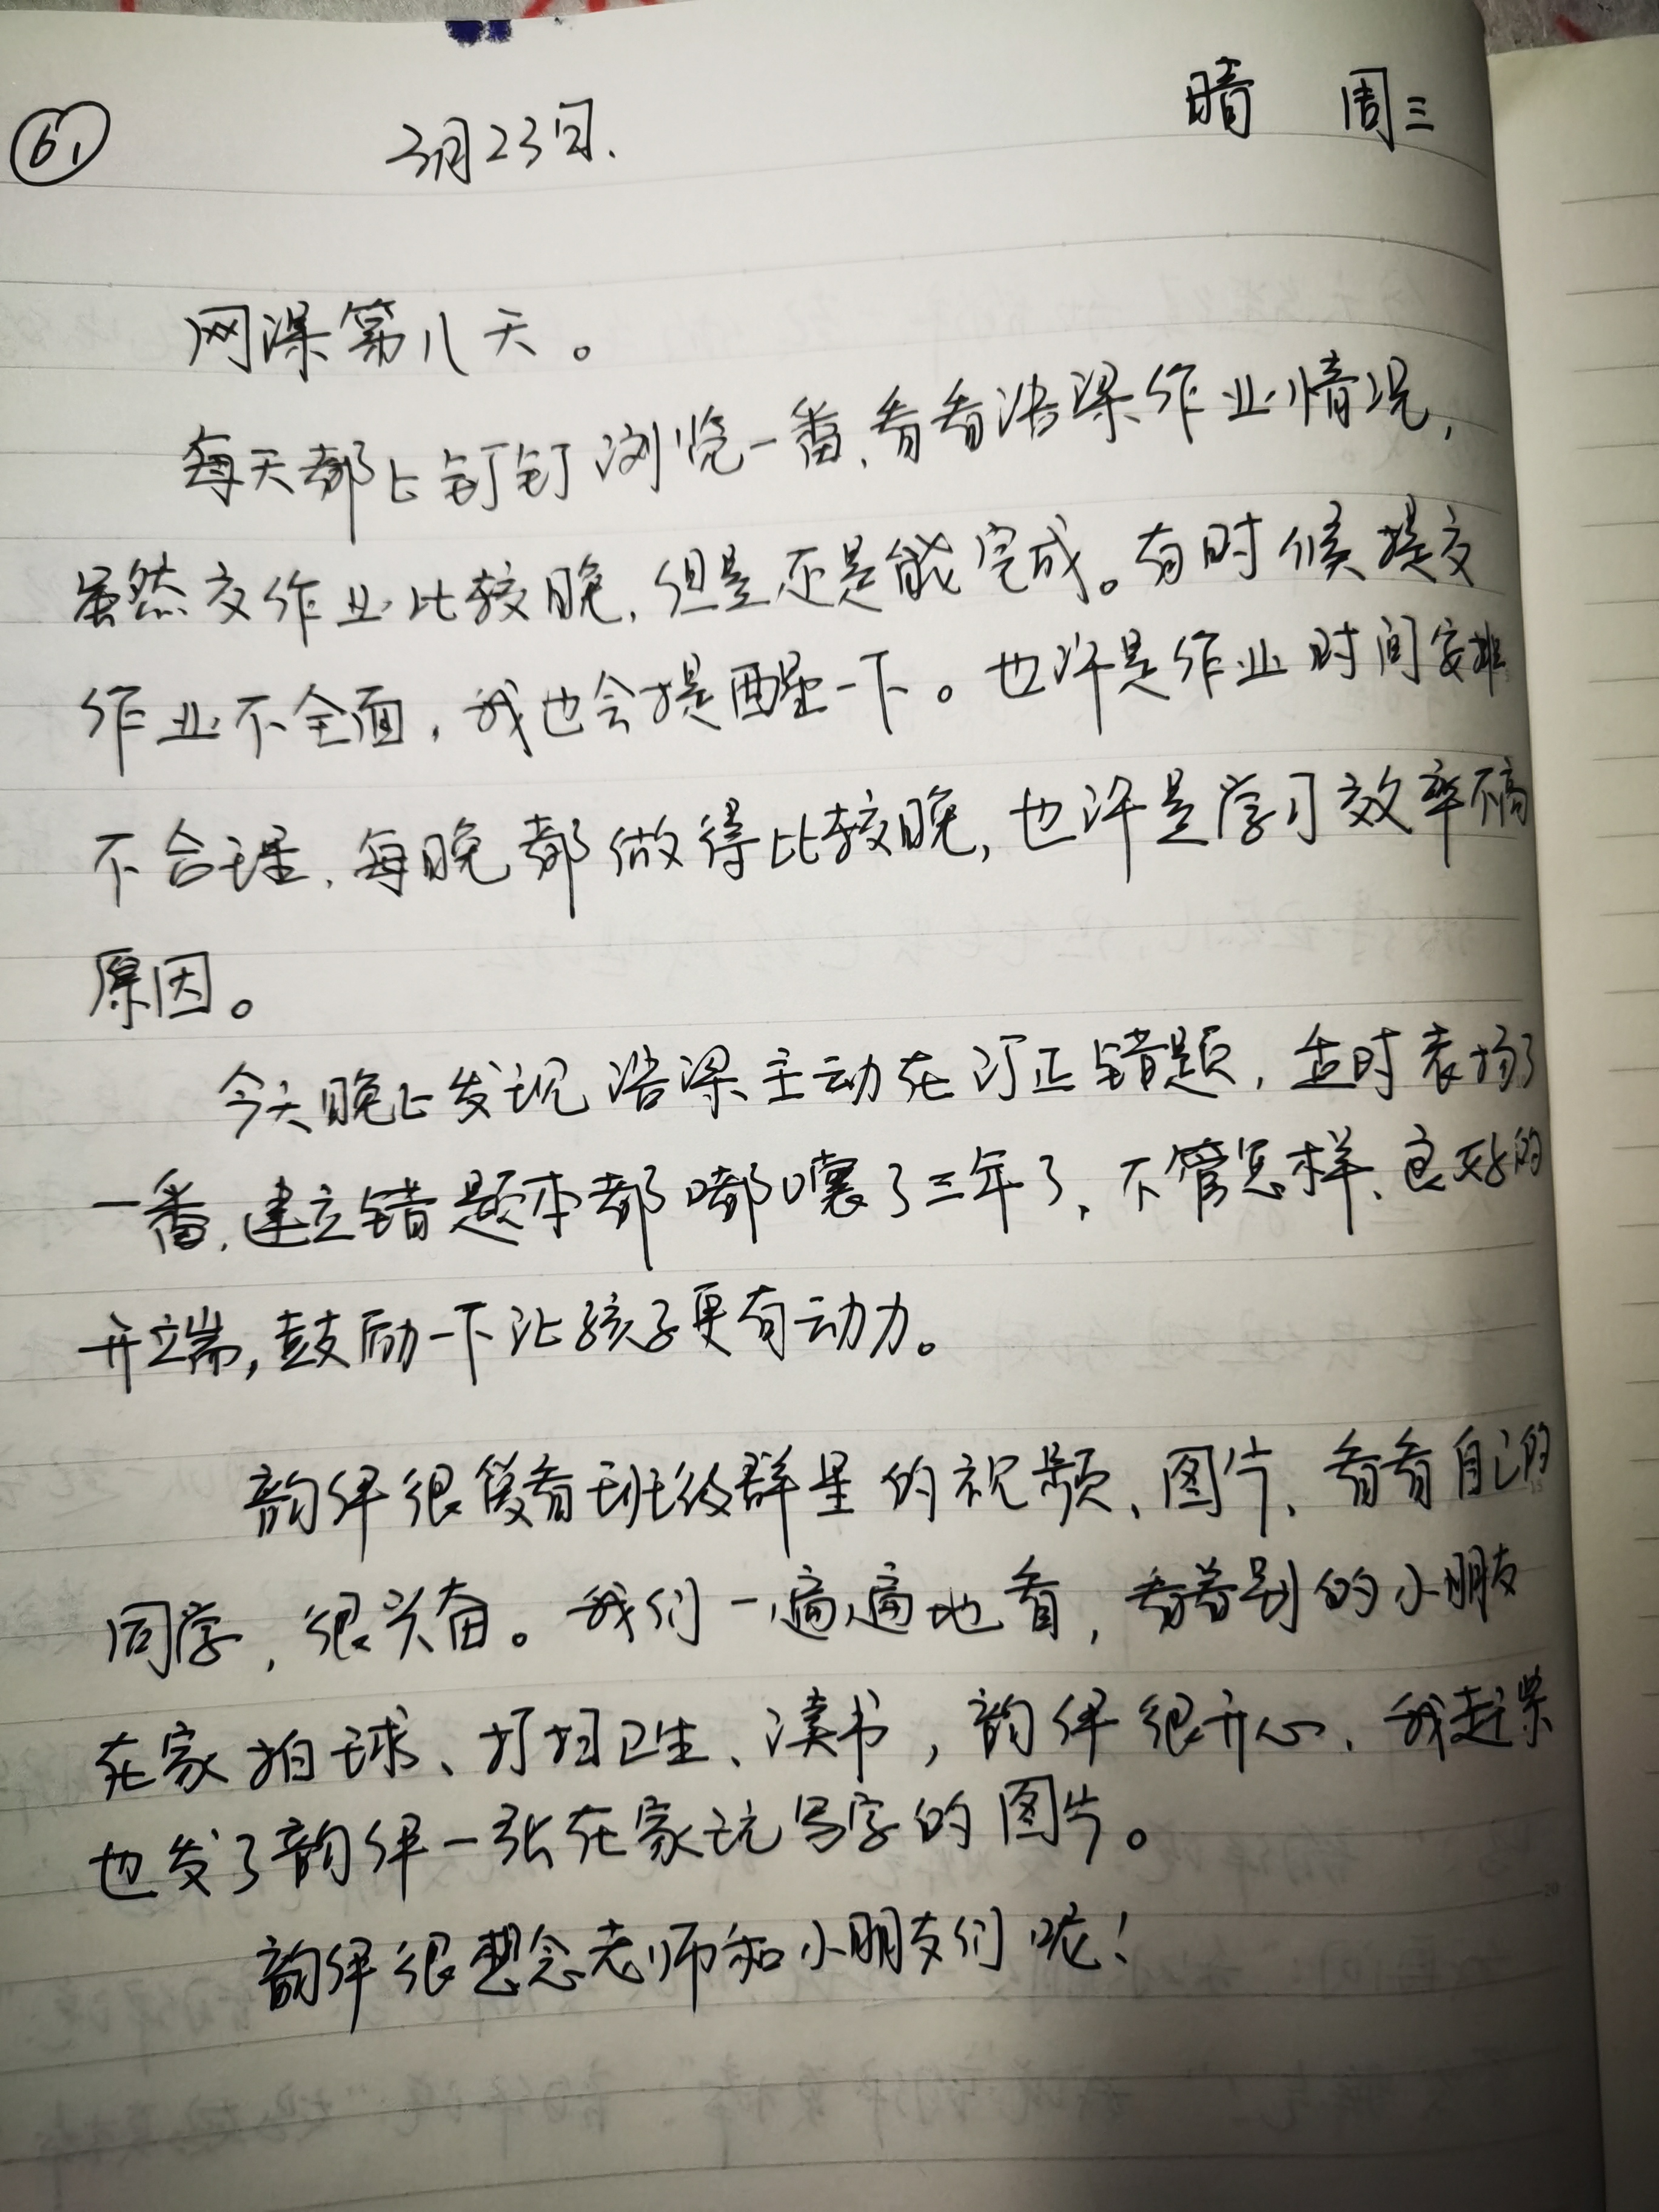 61
3月23日.
晴 周三
网课第八天。
每天都上钉钉浏览一番,看看浩梁作业情况,
虽然交作业比较晚,但是还是能完成。有时候提交
作业不全面,我也会提醒一下。也许是作业时间安排
不合理,每晚都做得比较晚,也许是学习效率不高
原因。
今天晚上发现浩梁主动在订正错题,及时表扬了
一番,建立错题本都嘟囔了三年了,不管怎样、良好的
开端,鼓励一下让孩子更有动力。
韵伊很爱看班级群里的视频、图片、看看自己的
同学,很兴奋。我们一遍遍地看,看着别的小朋友
在家拍球、打扫卫生、读书,韵伊很开心、我赶紧
也发了韵伊一张在家玩写字的图片。
韵伊很想念老师和小朋友们呢!